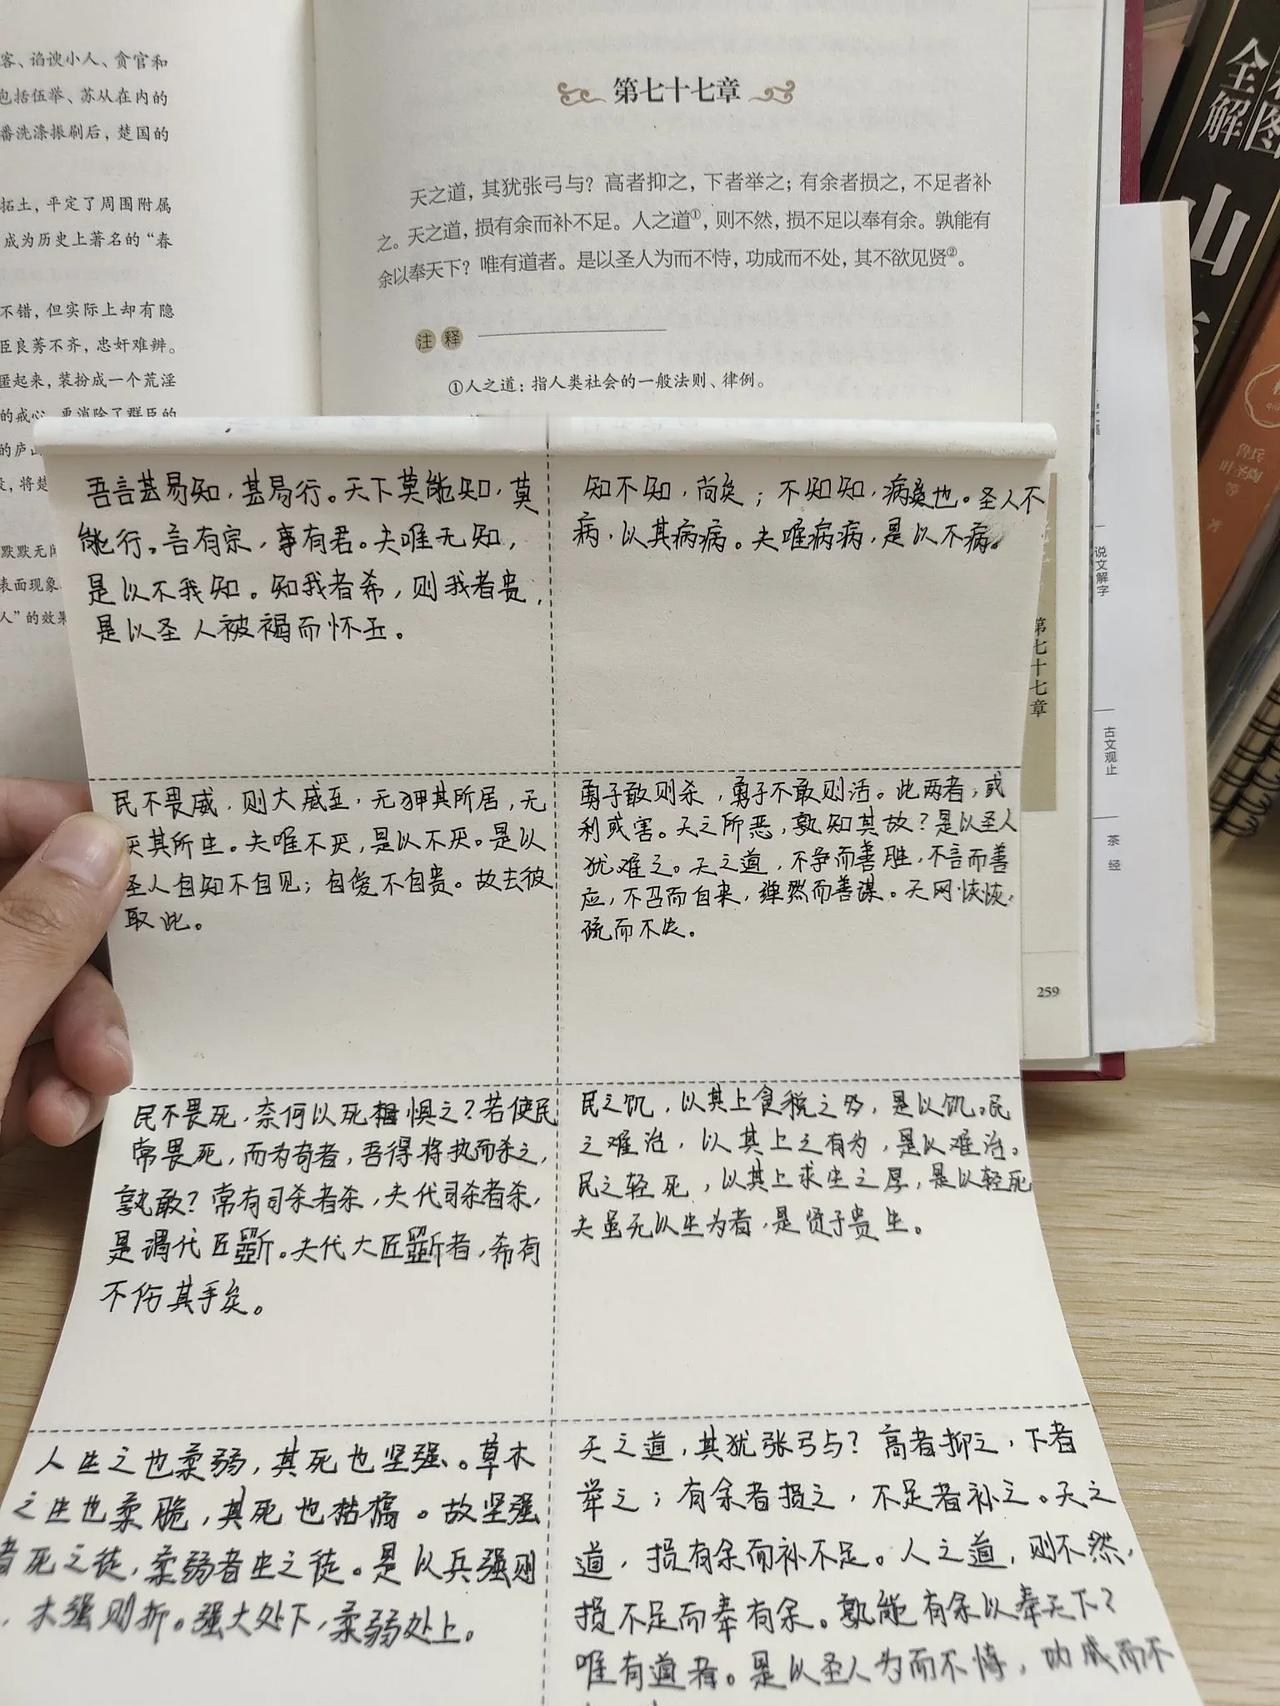 客、谄谀小人、贪官和
包括伍举、苏从在内的
番洗涤振刷后，楚国的
拓土，平定了周围附属
成为历史上著名的“春
不错，但实际上却有隐
臣良莠不齐，忠奸难辨。
匿起来，装扮成一个荒淫
的戒心，更消除了群臣的
的庐山
，将楚
默默无闻
表面现象
人”的效果
第七十七章
天之道，其犹张弓与？高者抑之，下者举之；有余者损之，不足者补
之。天之道，损有余而补不足。人之道①，则不然，损不足以奉有余。孰能有
余以奉天下？唯有道者。是以圣人为而不恃，功成而不处，其不欲见贤②。
注释
①人之道：指人类社会的一般法则、律例。
吾言甚易知，甚易行。天下莫能知，莫
能行。言有宗，事有君。夫唯无知，
是以不我知。知我者希，则我者贵，
是以圣人被褐而怀玉。
知不知，尚矣；不知知，病也。圣人不
病，以其病病。夫唯病病，是以不病。
民不畏威，则大威至，无狎其所居，无
厌其所生。夫唯不厌，是以不厌。是以
圣人自知不自见；自爱不自贵。故去彼
取此。
勇于敢则杀，勇于不敢则活。此两者，或
利或害。天之所恶，孰知其故？是以圣人
犹难之。天之道，不争而善胜，不言而善
应，不召而自来，繟然而善谋。天网恢恢，
疏而不失。
民不畏死，奈何以死惧之？若使民
常畏死，而为奇者，吾得将执而杀之，
孰敢？常有司杀者杀，夫代司杀者杀，
是谓代匠斲。夫代大匠斲者，希有
不伤其手矣。
民之饥，以其上食税之多，是以饥。民
之难治，以其上之有为，是以难治。
民之轻死，以其上求生之厚，是以轻死
夫虽无以生为者，是贤于贵生。
人生之也柔弱，其死也坚强。草木
之生也柔脆，其死也枯槁。故坚强
者死之徒，柔弱者生之徒。是以兵强则
，木强则折。强大处下，柔弱处上。
天之道，其犹张弓与？高者抑之，下者
举之；有余者损之，不足者补之。天之
道，损有余而补不足。人之道，则不然，
损不足而奉有余。孰能有余以奉天下？
唯有道者。是以圣人为而不恃，功成而不
第七十七章
259
说文解字
古文观止
茶经
全解
图
山
鲁兵
叶圣陶
等
著